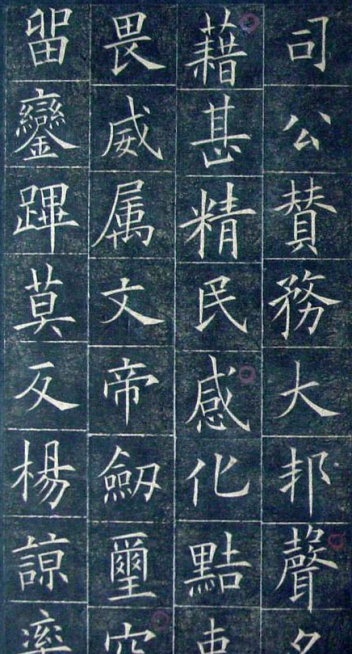 司公賛務大邦聲
藉甚精民感化點
畏威属文帝劔璽
留鑾蹕莫反楊諒